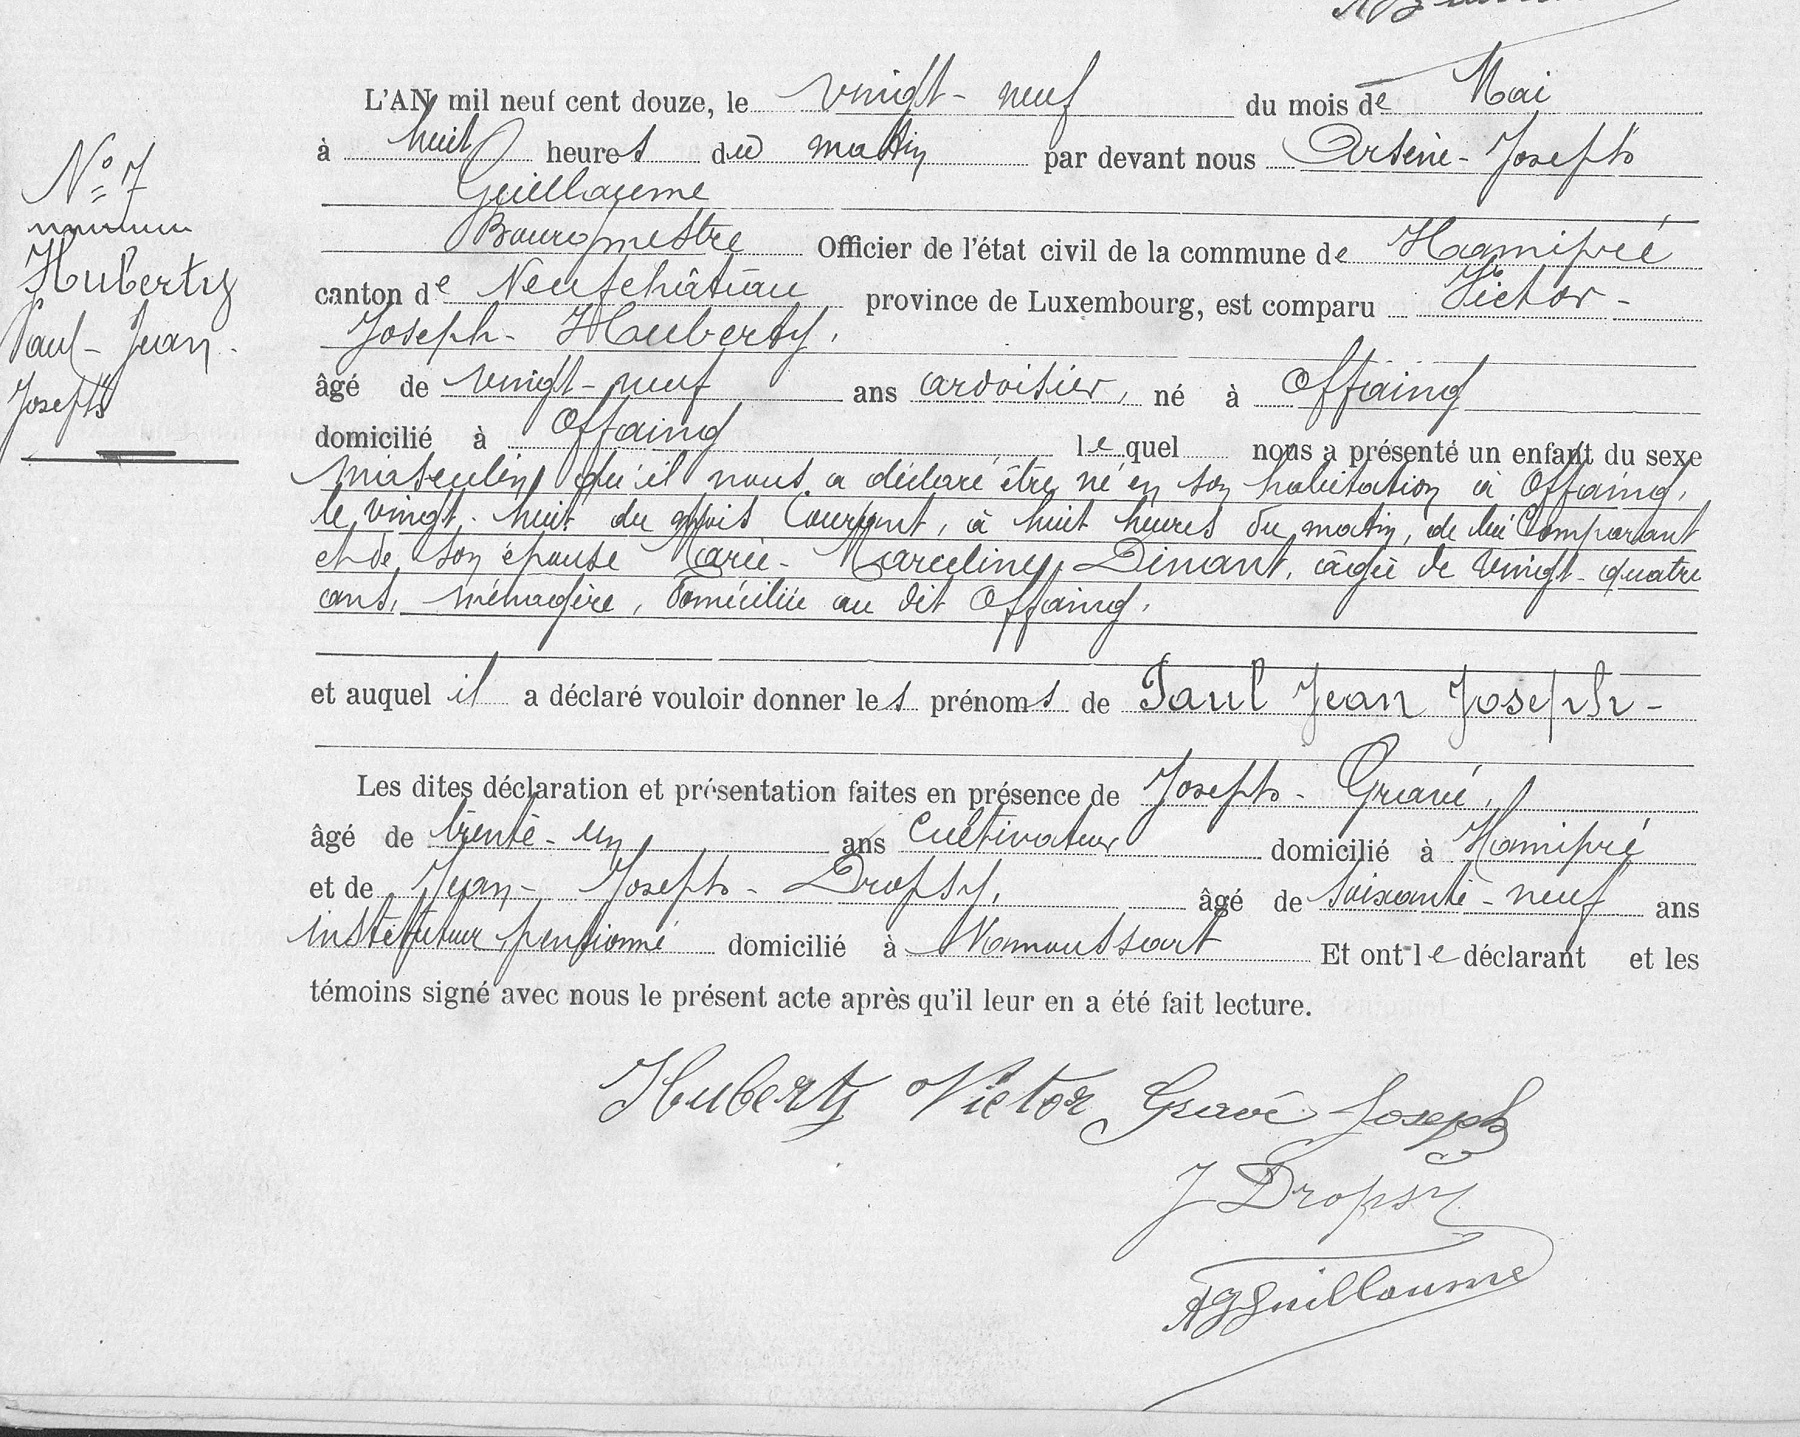 N° 7
Huberty
Paul-Jean-
Joseph
L'AN mil neuf cent douze, le vingt-neuf du mois de Mai
à huit heures du matin par devant nous Arsène-Joseph
Guillaume
Bourgmestre Officier de l'état civil de la commune de Hamipré
canton de Neufchâteau province de Luxembourg, est comparu Victor-
Joseph-Huberty,
âgé de vingt-neuf ans ardoisier, né à Offaing
domicilié à Offaing lequel nous a présenté un enfant du sexe
masculin qu'il nous a déclaré être né en son habitation à Offaing,
le vingt-huit du mois courant, à huit heures du matin, de lui Comparant
et de son épouse Marie-Marceline Dinant, âgée de vingt-quatre
ans, ménagère, domiciliée au dit Offaing,
et auquel il a déclaré vouloir donner les prénoms de Paul Jean Joseph-
Les dites déclaration et présentation faites en présence de Joseph-Gravé,
âgé de trente-un ans cultivateur domicilié à Hamipré
et de Jean-Joseph-Dropsy, âgé de soixante-neuf ans
instituteur pensionné domicilié à Namoussart Et ont le déclarant et les
témoins signé avec nous le présent acte après qu'il leur en a été fait lecture.
Huberty Victor Gravé Joseph
J Dropsy
AJGuillaume